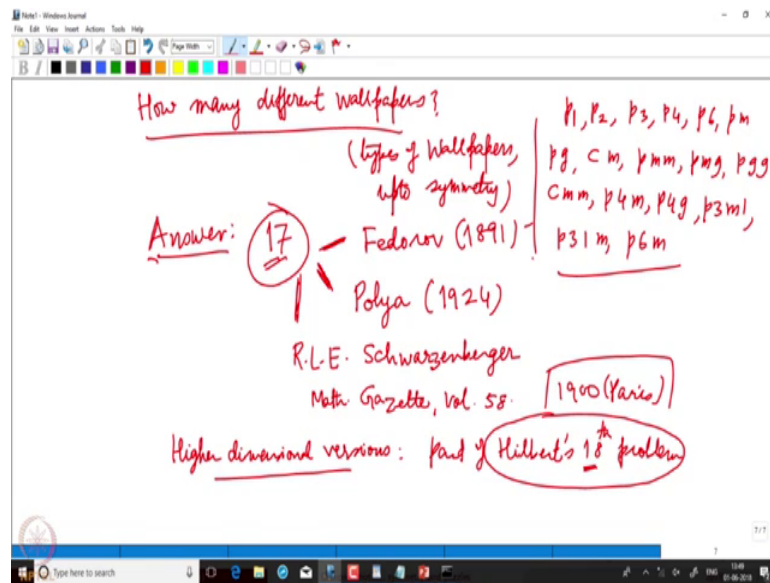 Note1 - Windows Journal
File Edit View Insert Actions Tools Help
Page Width
B I
How many different wallpapers?
(types of wallpapers,
upto symmetry)
p1, p2, p3, p4, p6, pm
pg, cm, pmm, pmg, pgg
cmm, p4m, p4g, p3m1,
p31m, p6m
Answer: 17 – Fedorov (1891)
Polya (1924)
R.L.E. Schwarzenberger
Math. Gazette, Vol. 58.
1900 (Paris)
Higher dimensional versions: part of Hilbert's 18th problem
7/7
7
Type here to search
ENG
13:49
01-06-2018